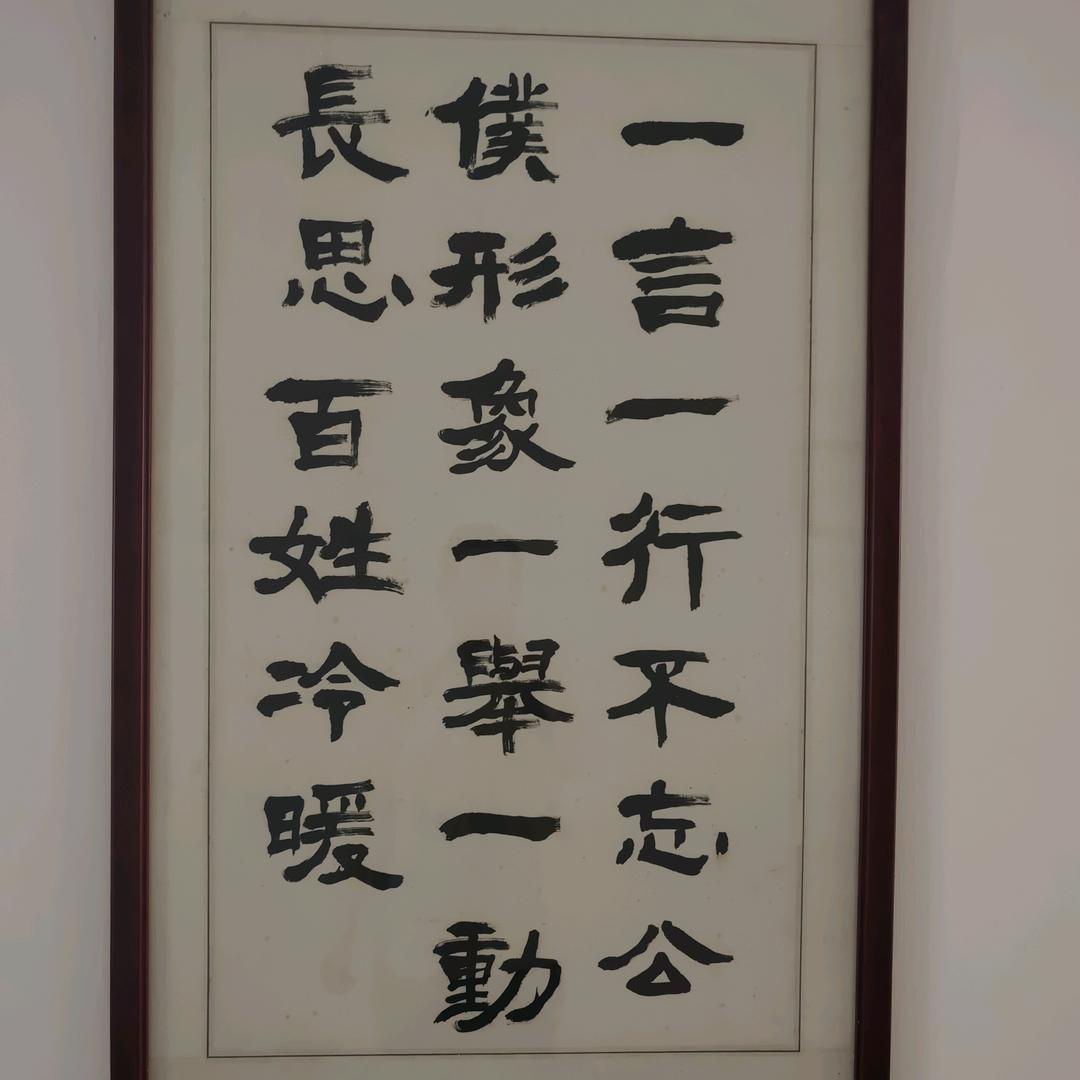 一言一行不忘公
僕形象一舉一動
長思百姓冷暖